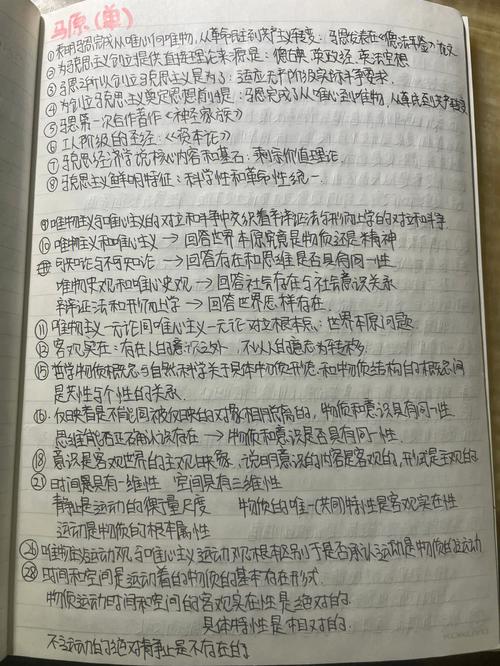 马原(单)
①表明马恩完成从唯心向唯物,从革命民主到共产主义转变:马恩发表在《德法年鉴》论文
②为马思主义创立提供直接理论来源是:德古典 英政经 英法空想
③马恩所以创立马思主义是为了:适应无产阶级学说斗争要求.
④为创立马思主义奠定思想前提是:马恩完成了从唯心到唯物,从革民到共产转变
⑤马恩第一次合作著作《神圣家族》
⑥工人阶级的圣经:《资本论》
⑦马思经济学说核心内容和基石:剩余价值理论.
⑧马思主义鲜明特征:科学性和革命性统一.
⑨唯物主义与唯心主义的对立和斗争中交织着辩证法与形而上学的对立和斗争
⑩唯物主义和唯心主义→回答世界本原究竟是物质还是精神
可知论与不可知论→回答存在和思维是否具有同一性
唯物史观和唯心史观→回答社会存在与社会意识关系
辩证法和形而上学→回答世界怎样存在.
⑪唯物主义一元论同唯心主义一元论对立根本点:世界本原问题.
⑬客观实在:存在人的意识之外,不以人的意志为转移.
⑮哲学物质概念与自然科学关于具体物质形态和物质结构的概念间
是共性与个性的关系.
⑯反映者是不能同被反映的对象相脱离的,物质和意识具有同一性.
思维能否正确认识存在→物质和意识是否具有同一性.
⑱意识是客观世界的主观映象,说明意识的内容是客观的,形式是主观的
㉑时间是具有一维性 空间具有三维性
静止是运动的衡量尺度 物质的唯一(共同)特性是客观实在性
运动是物质的根本属性
㉖唯物主义运动观与唯心主义运动观根本区别于是否承认运动是物质的运动
㉘时间和空间是运动着的物质的基本存在形式.
物质运动时间和空间的客观实在性是绝对的.
具体特性是相对的.
不运动的绝对静止是不存在的